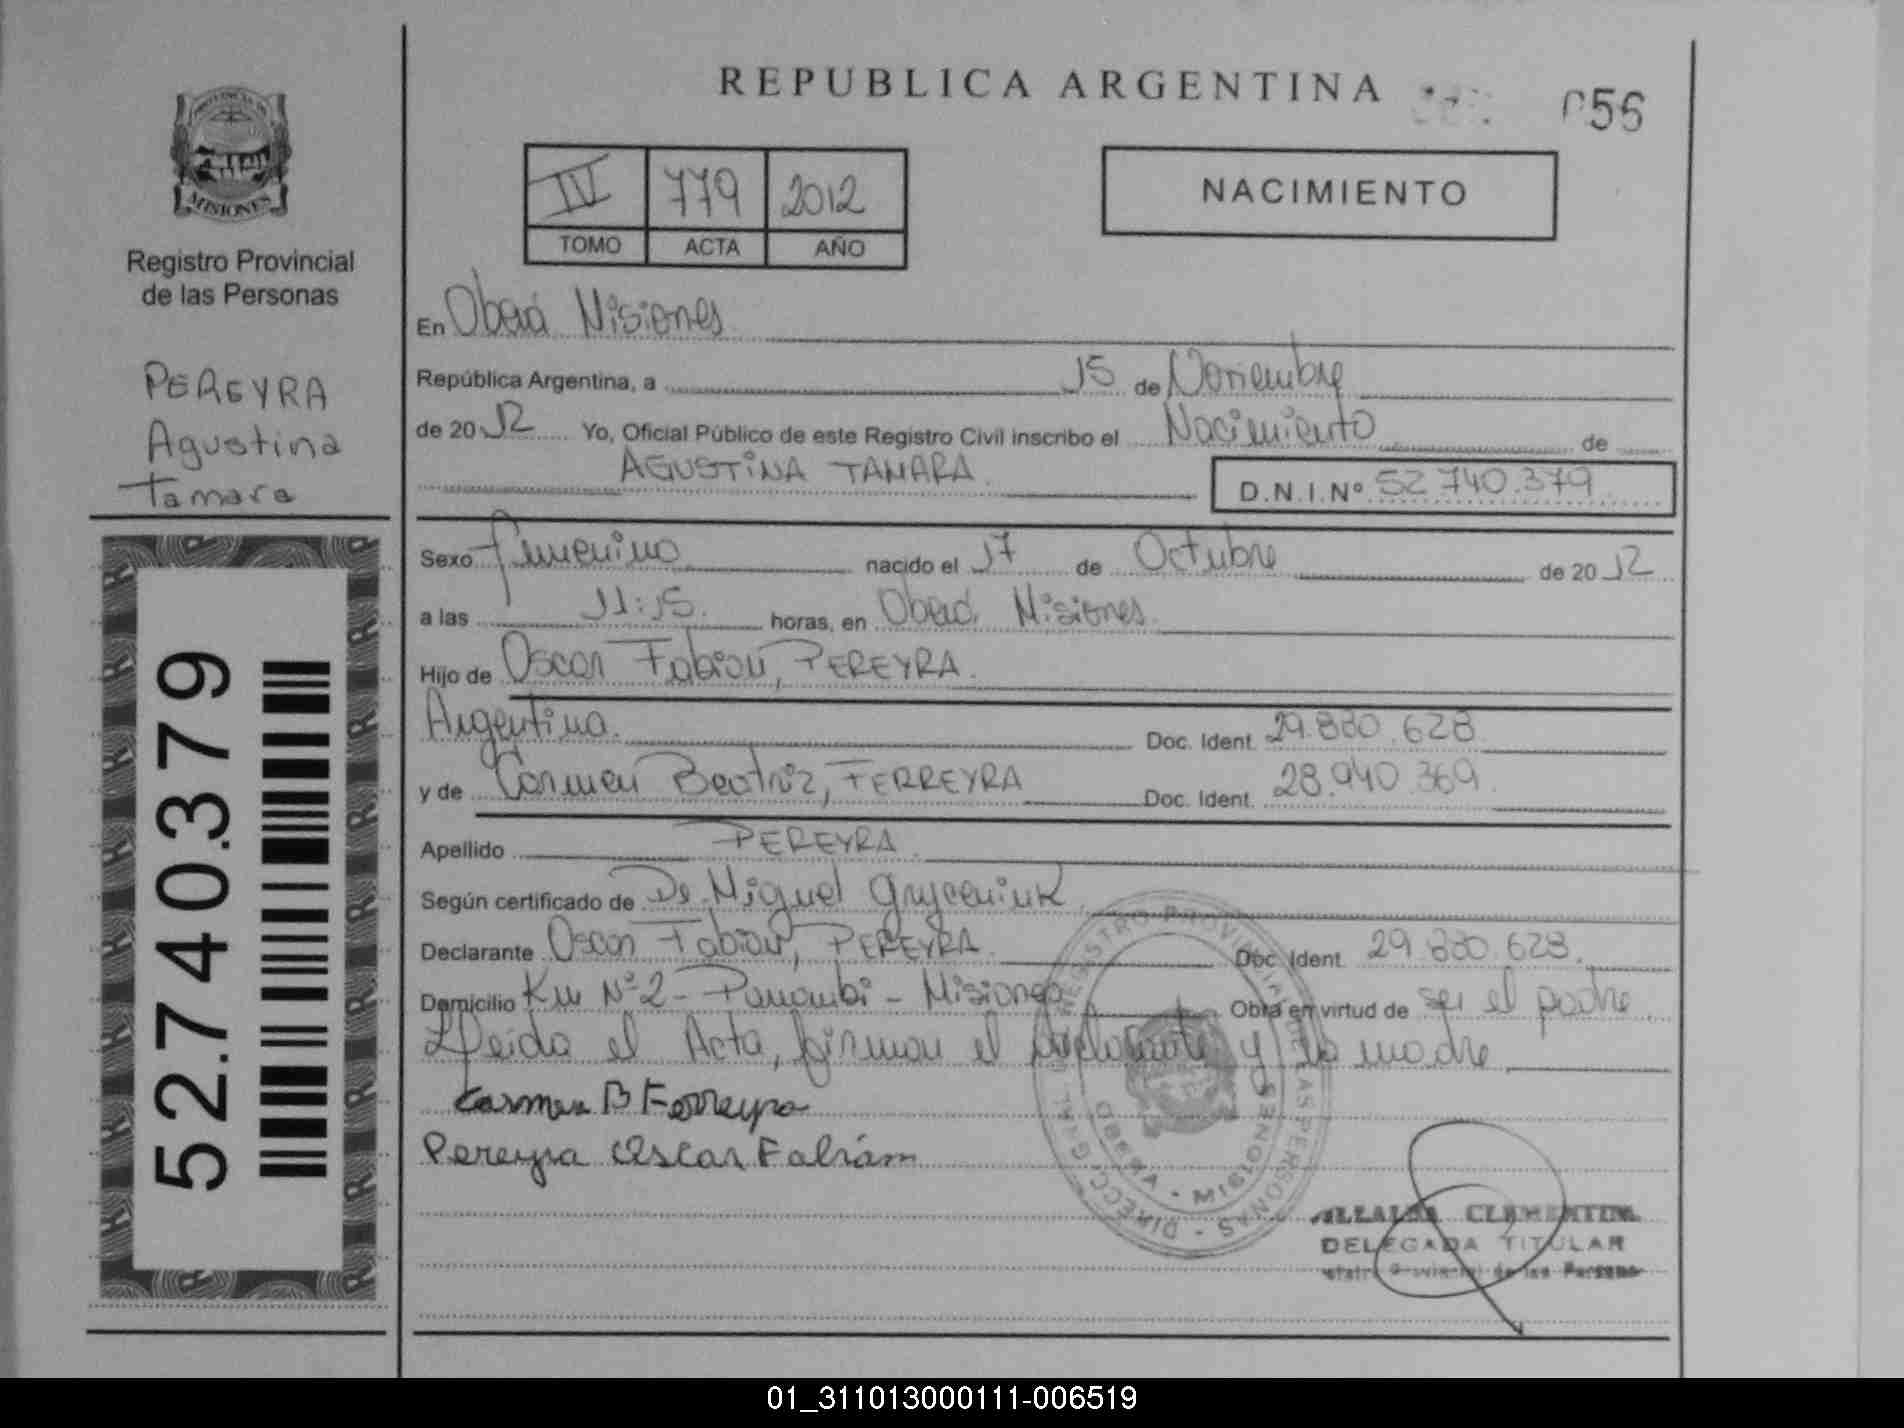 REPUBLICA ARGENTINA
056
IV 779 2012
TOMO ACTA AÑO
NACIMIENTO
PROVINCIA DE
MISIONES
Registro Provincial
de las Personas
PEREYRA
Agustina
Tamara
52.740.379
En Oberá Misiones
República Argentina, a 15 de Noviembre
de 2012 Yo, Oficial Público de este Registro Civil inscribo el Nacimiento de
AGUSTINA TAMARA D.N.I.Nº 52.740.379
Sexo femenino nacido el 17 de Octubre de 2012
a las 11:15 horas, en Oberá Misiones
Hijo de Oscar Fabian, PEREYRA.
Argentina. Doc. Ident. 29.880.628
y de Carmen Beatriz, FERREYRA Doc. Ident. 28.940.369
Apellido PEREYRA
Según certificado de Dr. Miguel
Declarante Oscar Fabian, PEREYRA. Doc. Ident. 29.880.628.
Domicilio Km Nº 2 - Panambi - Misiones Obra en virtud de ser el padre.
Lleida el Acta, firman el declarante y la madre
Carmen B Ferreyra
Pereyra Oscar Fabián
REGISTRO PROVINCIAL DE LAS PERSONAS - DIRECC. GRAL.
OBERA - MISIONES
CLEMENTINA
DELEGADA TITULAR
Provincial de las Personas
01_311013000111-006519